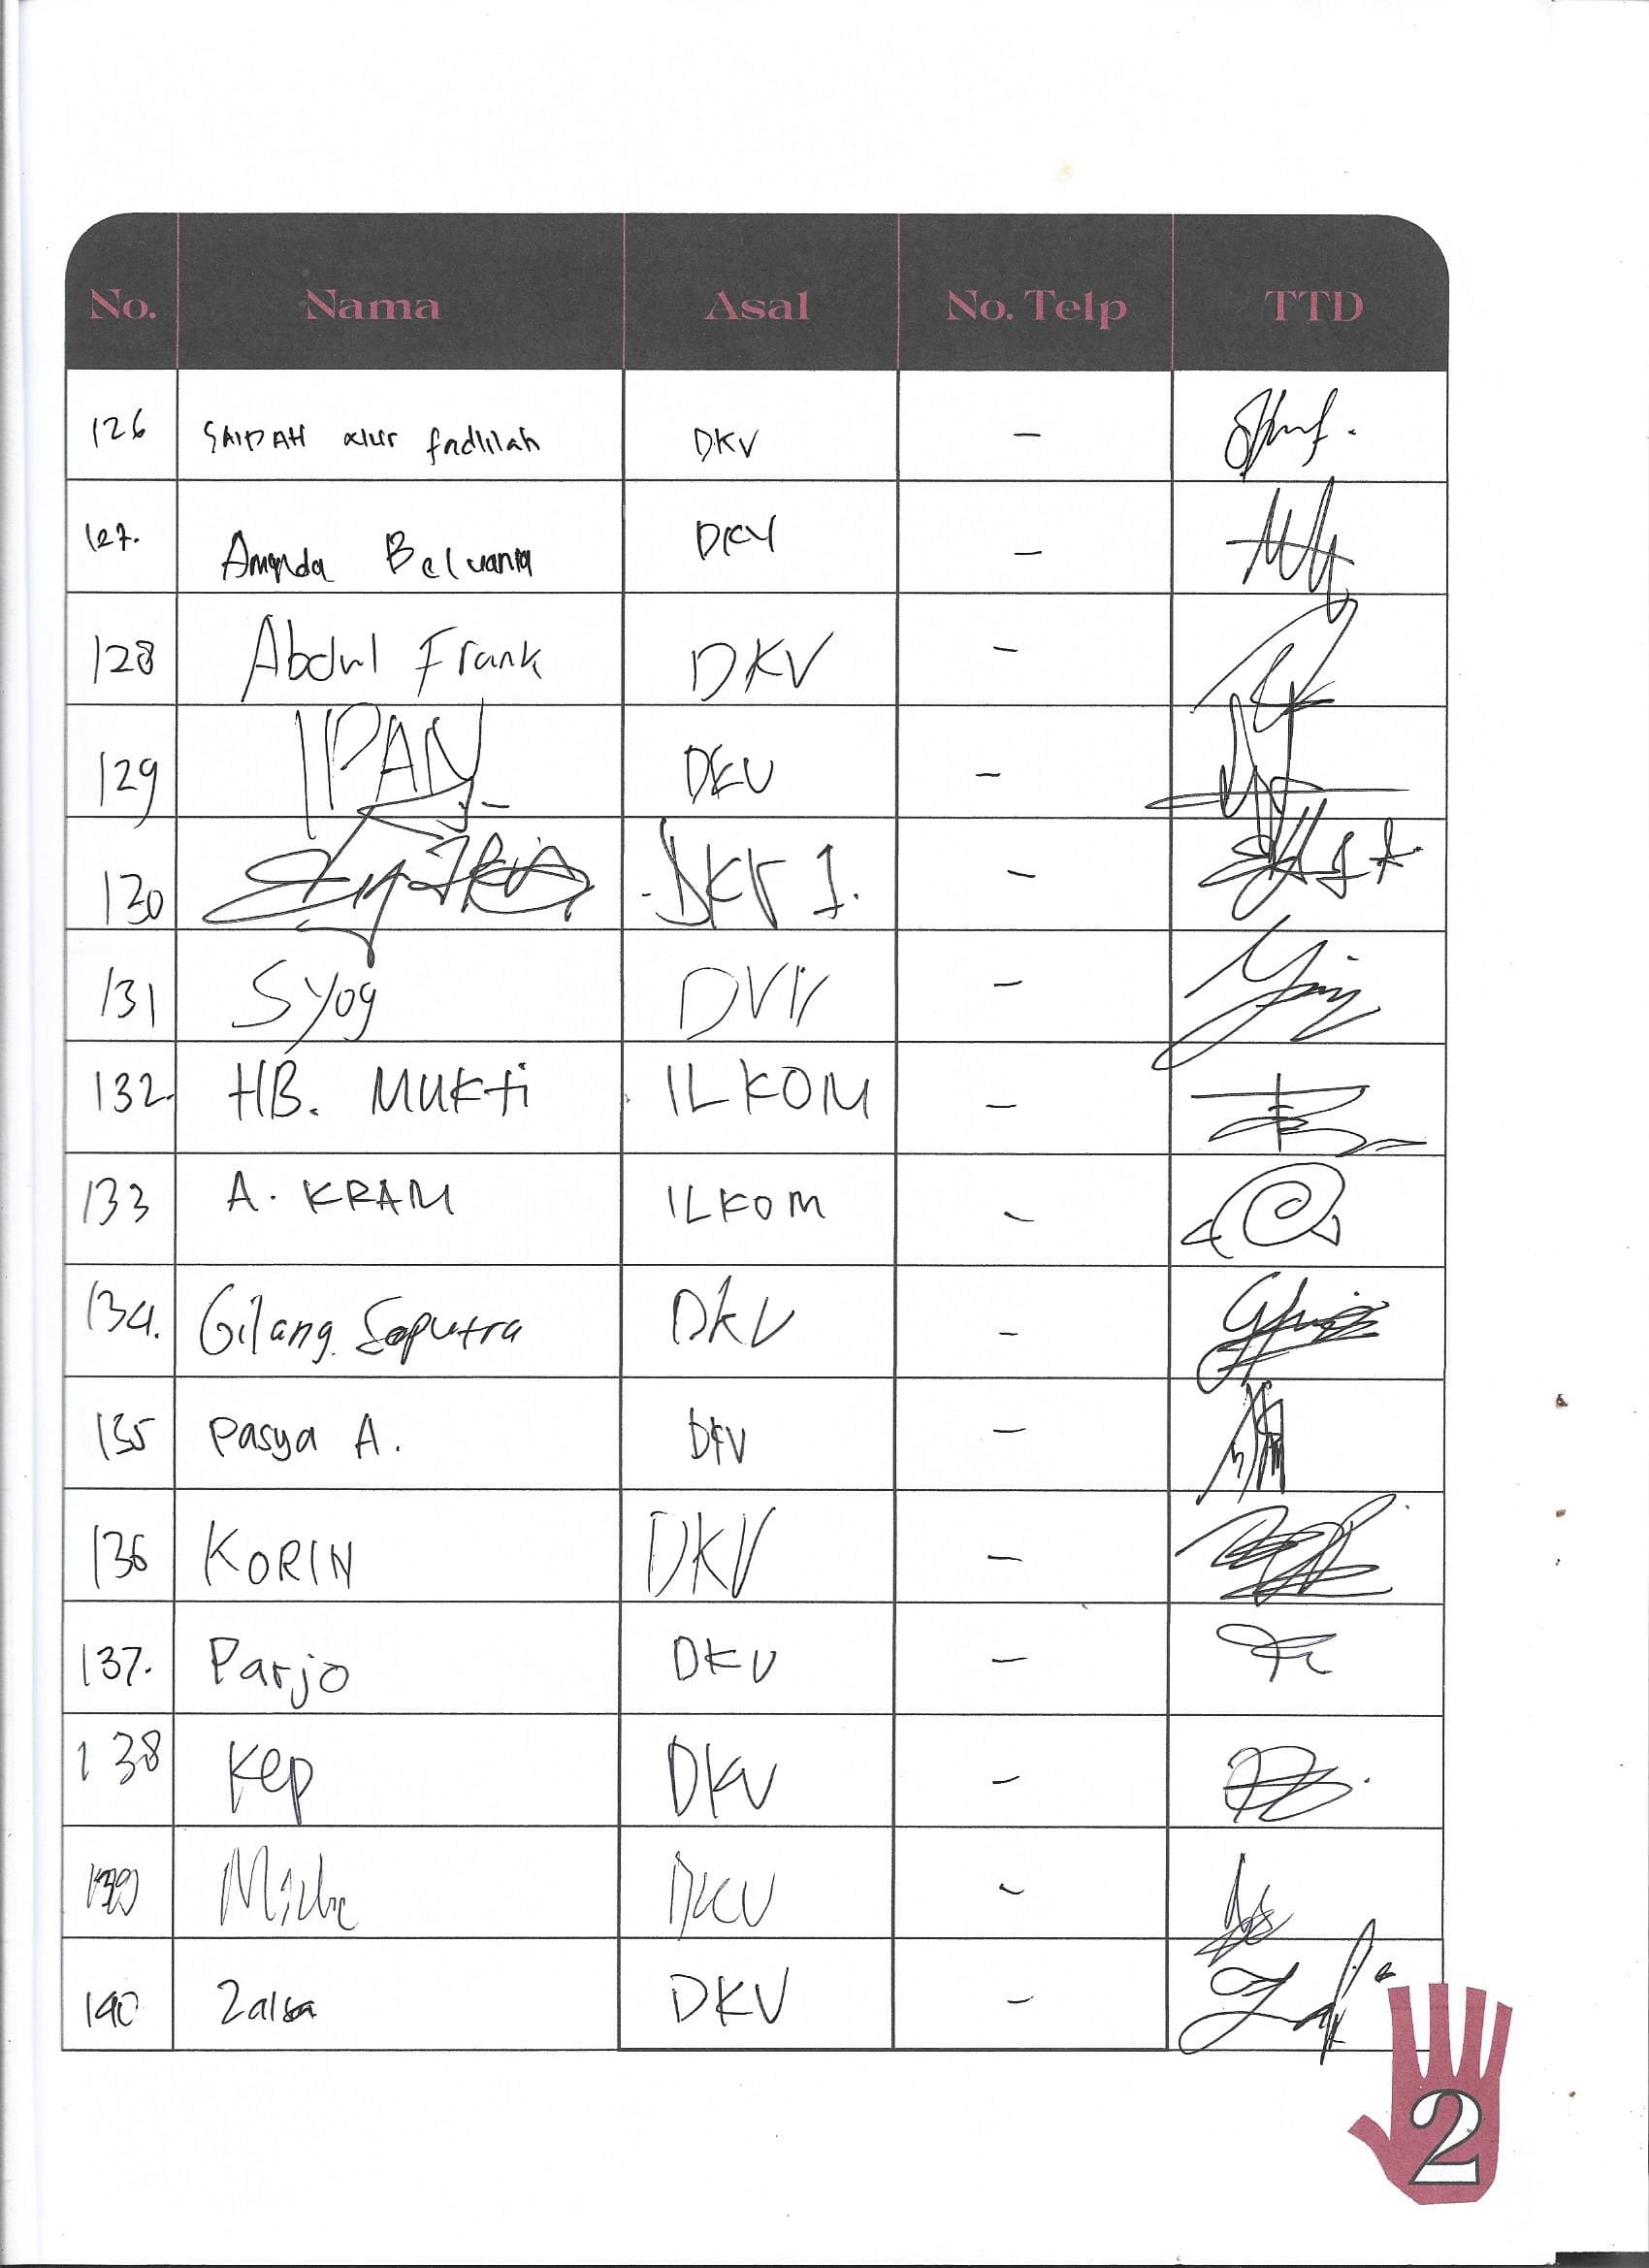 No. Nama Asal No. Telp TTD
126 SAIDAH Nur fadlilah DKV -
127. Amanda Belvania DKV -
128 Abdul Frank DKV -
129 IPAN DKV -
130 DKV 1. -
131 Syog -
132. HB. Mukti ILKOM -
133 A. KRAM ILKOM -
134. Gilang Saputra DKV -
135 Pasya A. DKV -
136 KORIN DKV -
137. Parjo DKV -
138 Kep DKV -
139 DKV -
140 Zalsa DKV -
2